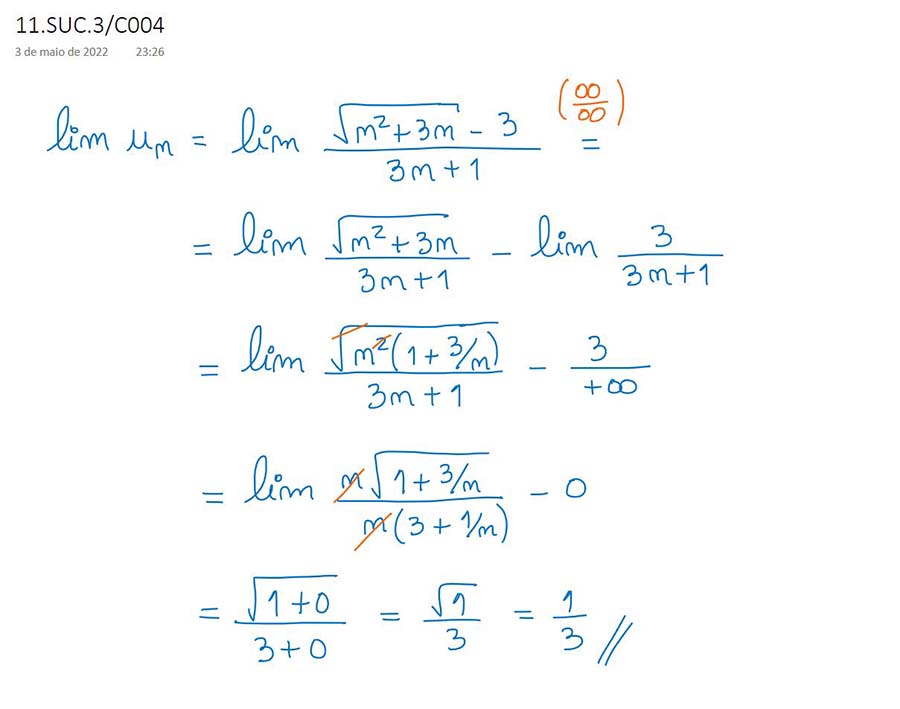 11.SUC.3/C004
3 de maio de 2022 23:26
lim uₙ = lim (√(n²+3n) - 3)/(3n+1) (∞/∞) =
= lim √(n²+3n)/(3n+1) - lim 3/(3n+1)
= lim √(n²(1+3/n))/(3n+1) - 3/+∞
= lim n√(1+3/n)/(n(3+1/n)) - 0
= √(1+0)/(3+0) = √1/3 = 1/3 //